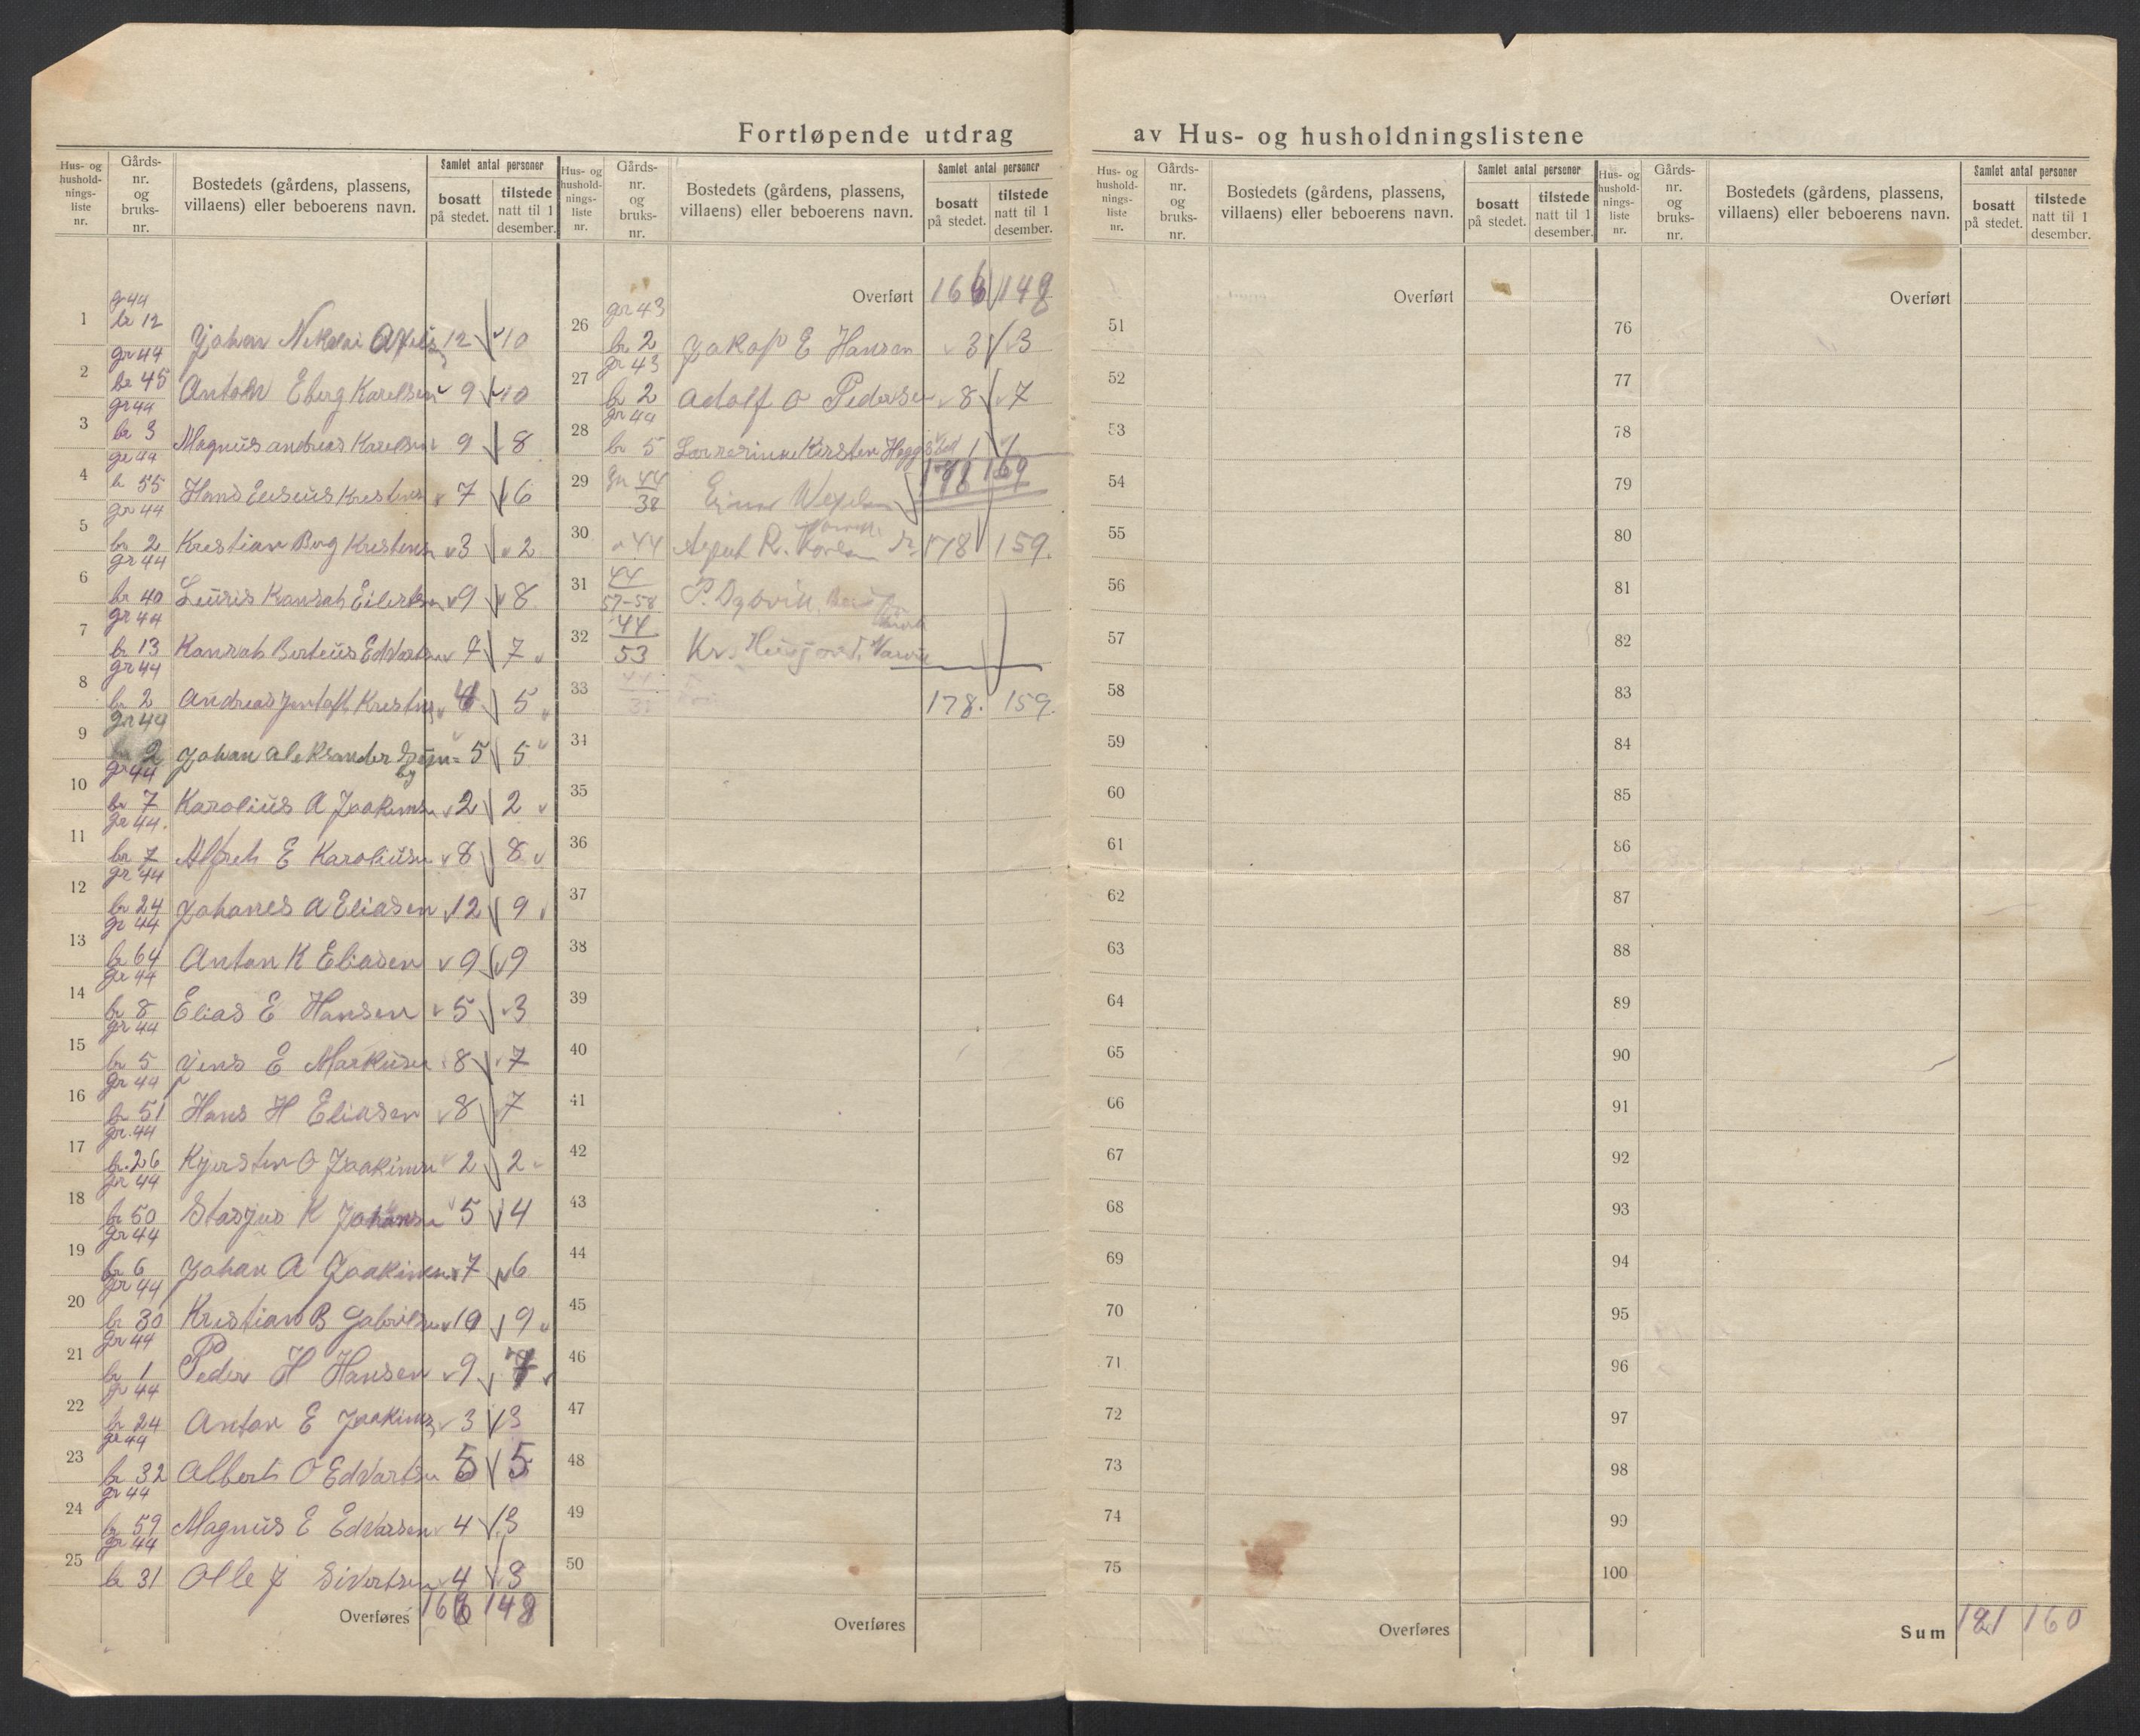 Fortløpende utdrag av Hus- og husholdningslistene
Hus- og husholdningsliste nr. Gårds-nr. og bruks-nr. Bostedets (gårdens, plassens, villaens) eller beboerens navn. Samlet antal personer bosatt på stedet. tilstede natt til 1 desember.
1 gr 44 br 12 Johan Nikolai 12 10
2 gr 44 br 45 Antohn Eberg Karelsen 9 10
3 gr 44 br 3 Magnus andreas Karelsen 9 8
4 gr 44 br 55 Hans 7 6
5 gr 44 br 2 Krestian Berg Kristens 3 2
6 gr 44 br 40 Lauris Konrah Eilertsen 9 8
7 gr 44 br 13 Konrah Berteüs Edvartsen 7
8 gr 44 br 2 Andreas 5
9 gr 44 2 Johan aleksander 5 5
10 gr 44 br 7 Karolius A Joakims 2 2
11 gr 44. br 7 Alfreh E Karoliusen 8 8
12 gr 44 br 24 Johanes A Eliasen 12 9
13 gr 44 br 64 Anton K Eliasen 9 9
14 gr 44 br 8 Elias E Hansen 5 3
15 gr 44 br 5 Jens E Markusen 8 7
16 gr 44 br 51 Hans H Eliasen 8 7
17 gr. 44 br. 26 Kjersten O Joakimsen 2 2
18 gr 44 br 50 Stasjus K 5 4
19 gr 44 br 6 Johan A Joakimsen 7 6
20 gr 44 br 30 Kristian B Gabrilsen 10 9
21 gr 44 br 1 Peder H Hansen 9 7
22 gr 44 br 24 Anton E Joakims 3 3
23 gr 44 br 32 Albert O Edvartsen 5 5
24 gr 44 br 59 Magnus E Edvarsen 4 3
25 gr 44 br 31 Olle J Sivertsen 4 3
Overføres 148
Hus- og husholdningsliste nr. Gårds-nr. og bruks-nr. Bostedets (gårdens, plassens, villaens) eller beboerens navn. Samlet antal personer bosatt på stedet. tilstede natt til 1 desember.
Overført 148
26 gr 43 br 2 Jakop E Hansen 3 3
27 gr 43 br 2 Adolf O Pedersen 8 7
28 gr 44 br 5 Kirsten 1 1
29 gr 44 38 Einar
30 44 178 159.
31 44 57-58
32 44 53 Kr.
33 178. 159.
34
35
36
37
38
39
40
41
42
43
44
45
46
47
48
49
50
Overføres
Hus- og husholdningsliste nr. Gårds-nr. og bruks-nr. Bostedets (gårdens, plassens, villaens) eller beboerens navn. Samlet antal personer bosatt på stedet. tilstede natt til 1 desember.
Overført
51
52
53
54
55
56
57
58
59
60
61
62
63
64
65
66
67
68
69
70
71
72
73
74
75
Overføres
Hus- og husholdningsliste nr. Gårds-nr. og bruks-nr. Bostedets (gårdens, plassens, villaens) eller beboerens navn. Samlet antal personer bosatt på stedet. tilstede natt til 1 desember.
Overført
76
77
78
79
80
81
82
83
84
85
86
87
88
89
90
91
92
93
94
95
96
97
98
99
100
Sum 181 160